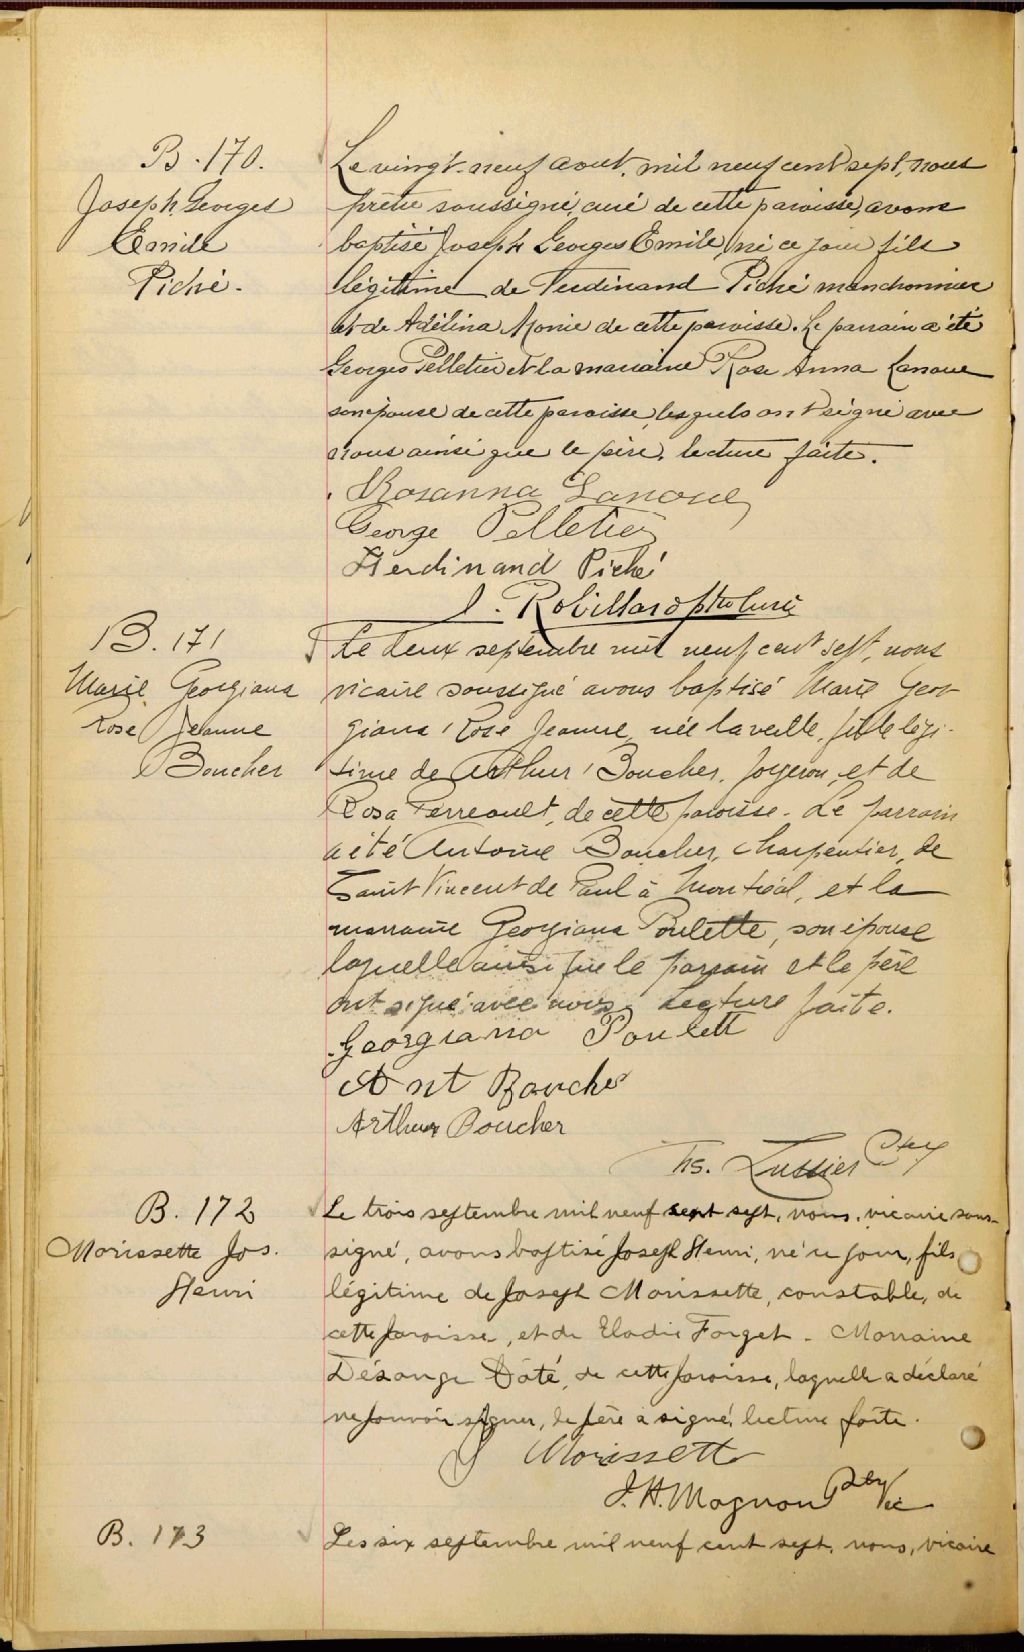 B. 170.
Joseph Georges
Emile
Piché.
Le vingt-neuf aout, mil neuf cent sept, nous
prêtre soussigné, curé de cette paroisse, avons
baptisé Joseph Georges Emile, né ce jour fils
légitime de Ferdinand Piché manchonnier
et de Adélina Monie de cette paroisse. Le parrain a été
Georges Pelletier et la marraine Rose Anna Lanoue
son épouse de cette paroisse, lesquels ont signé avec
nous ainsi que le père. lecture faite.
Rosanna Lanoue
George Pelletier
Ferdinand Piché
J. Robillard ptre curé
B. 171
Marie Georgiana
Rose Jeanne
Boucher
Le deux septembre mil neuf cent sept, nous
vicaire soussigné avons baptisé Marie Geor-
giana Rose Jeanne, née la veille, fille légi-
time de Arthur Boucher, forgeron, et de
Rosa Perreault, de cette paroisse. Le parrain
a été Antoine Boucher, charpentier, de
Saint Vincent de Paul à Montréal, et la
marraine Georgiana Poulette, son épouse
laquelle ainsi que le parrain et le père
ont signé avec nous. Lecture faite.
Georgianna Poulett
Ant Boucher
Arthur Boucher
Ths. Lussier Ptre
B. 172
Morissette Jos.
Henri
Le trois septembre mil neuf cent sept, nous, vicaire sous-
signé, avons baptisé Joseph Henri, né ce jour, fils
légitime de Joseph Morissette, constable, de
cette paroisse, et de Elodie Forget. Marraine
Désange Côté, de cette paroisse, laquelle a déclaré
ne pouvoir signer, le père a signé, lecture faite.
J Morissette
J. H. Magnan Ptre Vic
B. 173
Les six septembre mil neuf cent sept, nous, vicaire